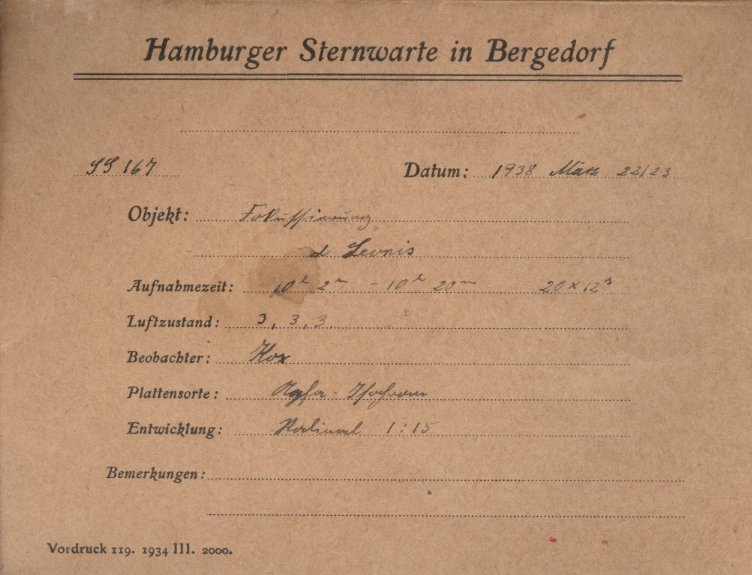 Hamburger Sternwarte in Bergedorf
SS 167 Datum: 1938 März 22/23
Objekt: Fokussierung
α Leonis
Aufnahmezeit: 10ʰ 2ᵐ - 10ʰ 20ᵐ 20 x 12ˢ
Luftzustand: 3, 3, 3
Beobachter: Kox
Plattensorte: Agfa - Isochrom
Entwicklung: Rodinal 1:15
Bemerkungen:
Vordruck 119. 1934 III. 2000.